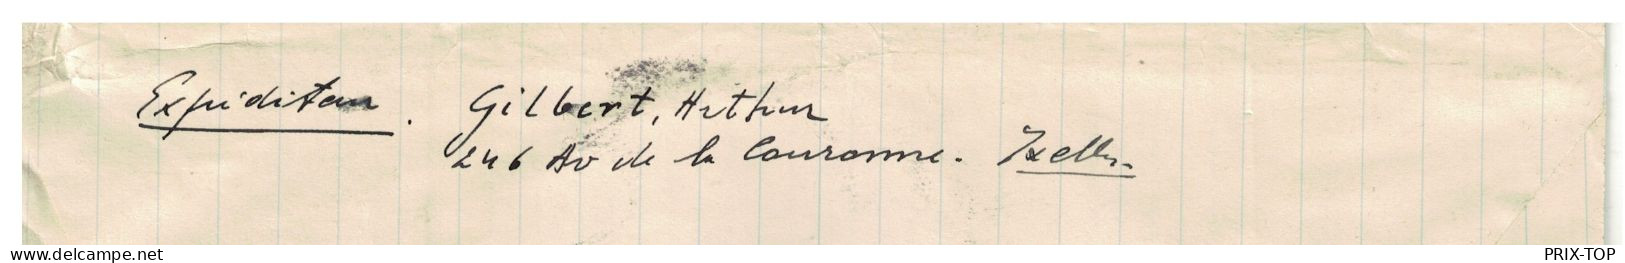 Expéditeur. Gilbert, Arthur
246 Av de la Couronne. Ixelles.
delcampe.net
PRIX-TOP